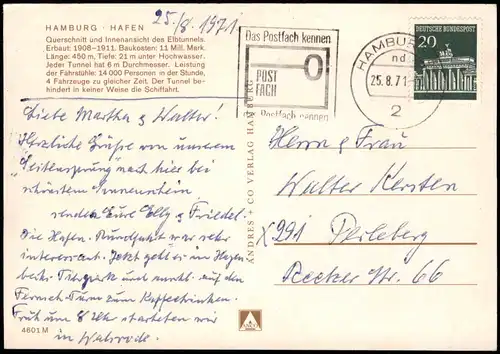 25./8. 1971.
HAMBURG · HAFEN
Querschnitt und Innenansicht des Elbtunnels.
Erbaut: 1908-1911. Baukosten: 11 Mill. Mark.
Länge: 450 m, Tiefe: 21 m unter Hochwasser.
Jeder Tunnel hat 6 m Durchmesser. Leistung
der Fahrstühle: 14 000 Personen in der Stunde,
4 Fahrzeuge zu gleicher Zeit. Der Tunnel be-
hindert in keiner Weise die Schiffahrt.
Liebe Martha & Walter!
Herzliche Grüße von unserem
"Seitensprung" nach hier bei
schönstem Sonnenschein
senden Eure Elly & Friedel.
Die Hafen-Rundfahrt war sehr
interessant. Jetzt geht's in Hagen-
becks Tierpark und auf den
Fernseh-Turm zum Kaffeetrinken.
Früh um 8 Uhr starteten wir
in Walsrode.
4601 M
ANDRES + CO VERLAG HAMBURG
ANCO
Das Postfach kennen
POST
FACH
Postfach kennen
HAMBURG
nd
25.8.71
2
DEUTSCHE BUNDESPOST
20
Herrn & Frau
Walter Kersten
X 291 Perleberg
Becker Str. 66